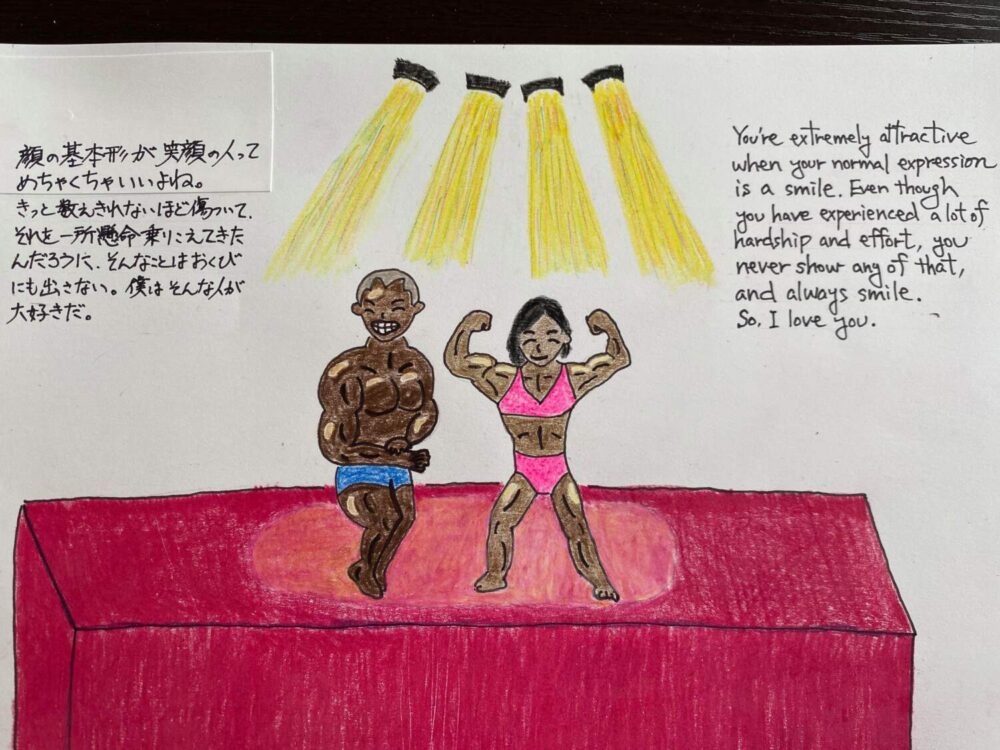 顔の基本形が笑顔の人って
めちゃくちゃいいよね。
きっと数えきれないほど傷ついて、
それを一所懸命乗りこえてきた
んだろうに、そんなことはおくび
にも出さない。僕はそんな人が
大好きだ。
You're extremely attractive
when your normal expression
is a smile. Even though
you have experienced a lot of
hardship and effort, you
never show any of that,
and always smile.
So, I love you.